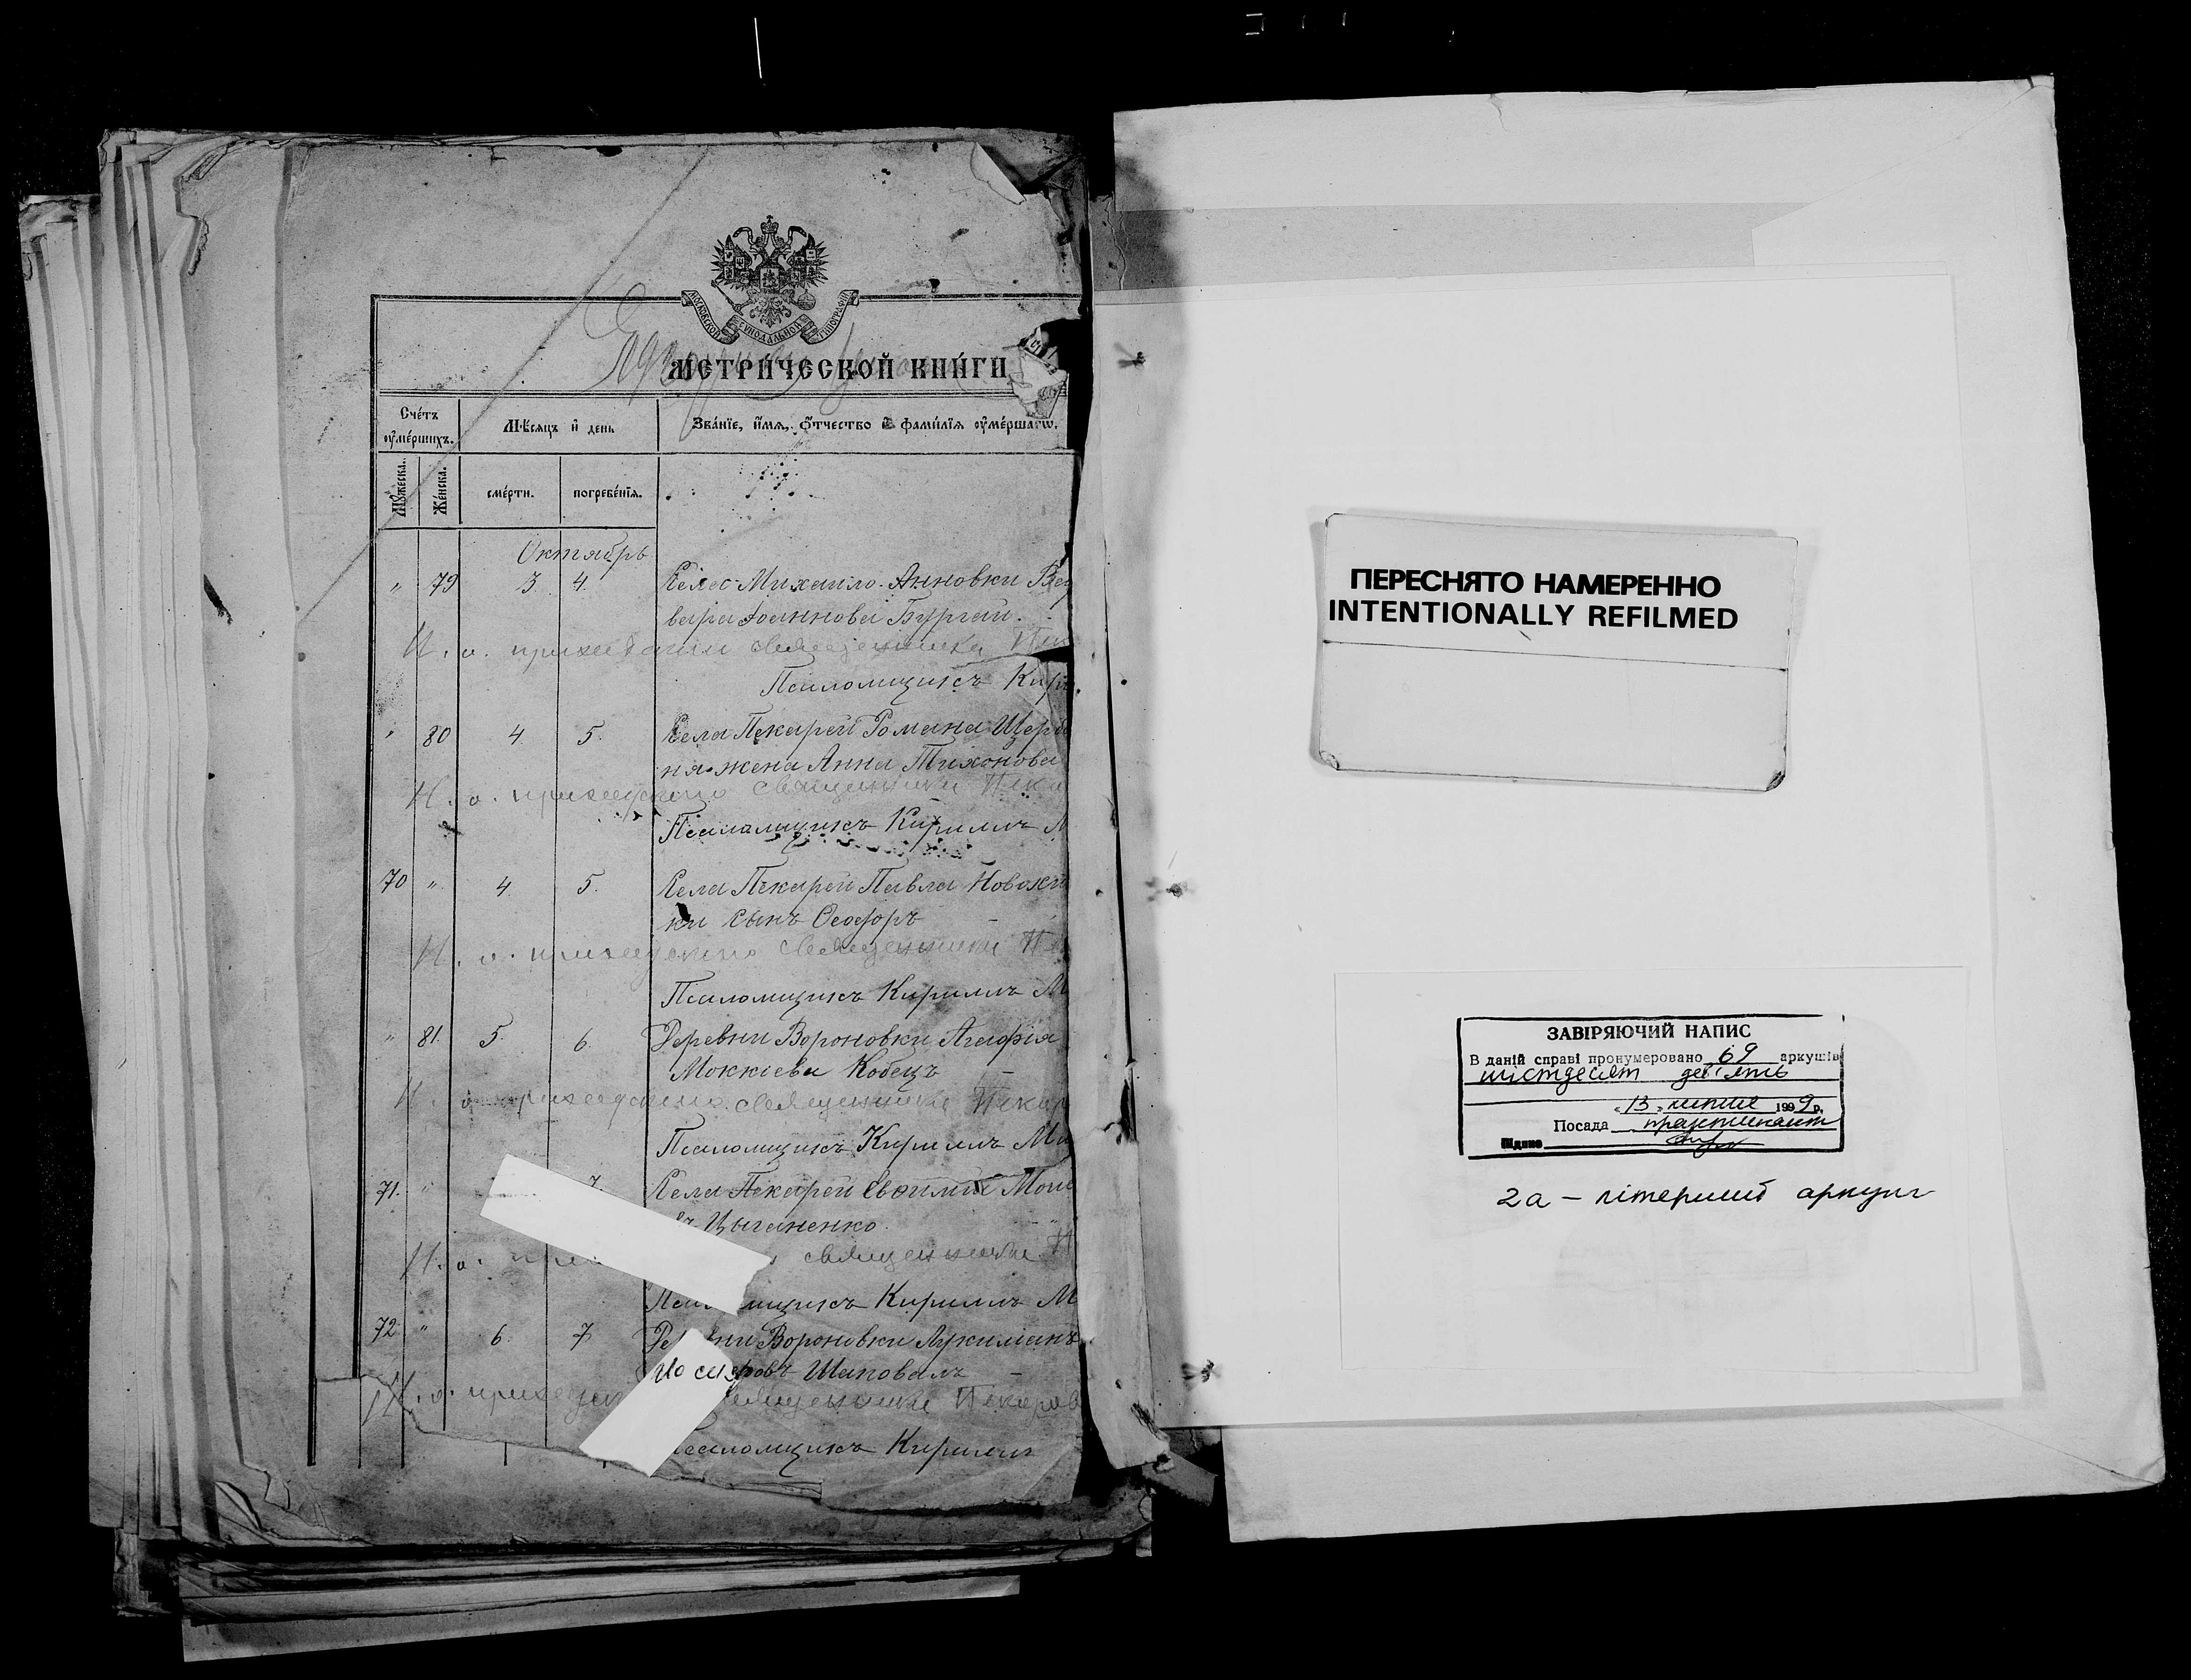 МОСКОВСКОЙ СѴНОДАЛЬНОЙ ТИПОГРАФІИ
МЕТРИ́ЧЕСКОЙ КНИ́ГИ
Сче́тъ оумершихъ.
Мѣсяцъ и день
Зва́нїе, и́мя, ѻ́тчество и фами́лїя оумершагѡ.
Мꙋжеска.
Же́нска.
сме́рти.
погребе́нїя.
Октябрь
" 79 3 4. Села Михайло-Анновки
вара Іоаннова Бургаи.
И. о. приходскаго священника
Псаломщикъ Кири
" 80 4. 5. Села Пекарей Романа Щерб
ня жена Анна Тихонова
И. о. приходскаго священника Пека
Псаломщикъ Кириллъ М
70 " 4 5. Села Пекарей Павла Новохи
ки сынъ Ѳеодоръ
И. о. приходскаго священника
Псаломщикъ Кириллъ М
" 81. 5. 6. Деревни Вороновки Агафія
Моккіева Кобецъ
И. о. приходскаго священника Пекар
Псаломщикъ Кириллъ Ми
71. " 7 Села Пекарей Евѳимій
Цыганенко.
И. о. священника
мщикъ Кириллъ М
72 " 6. 7 вни Вороновки Лукиліанъ
Шаповалъ
И. о. приходск Пекарев
саломщикъ Кириллъ
ПЕРЕСНЯТО НАМЕРЕННО
INTENTIONALLY REFILMED
ЗАВІРЯЮЧИЙ НАПИС
В даній справі пронумеровано 69 аркушів
шістдесят дев'ять
"13" липня 1999 р.
Посада практикант
Підпис
2а – літерний аркуш